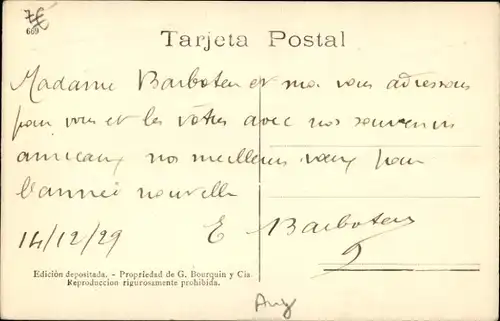 7€
669
Tarjeta Postal
Madame Barboteu et moi vous adressons
pour vous et les vôtres avec nos souvenirs
amicaux nos meilleurs vœux pour
l'année nouvelle
14/12/29 E Barboteu
Edición depositada. - Propriedad de G. Bourquin y Cia.
Reproduccion rigurosamente prohibida.
Arg